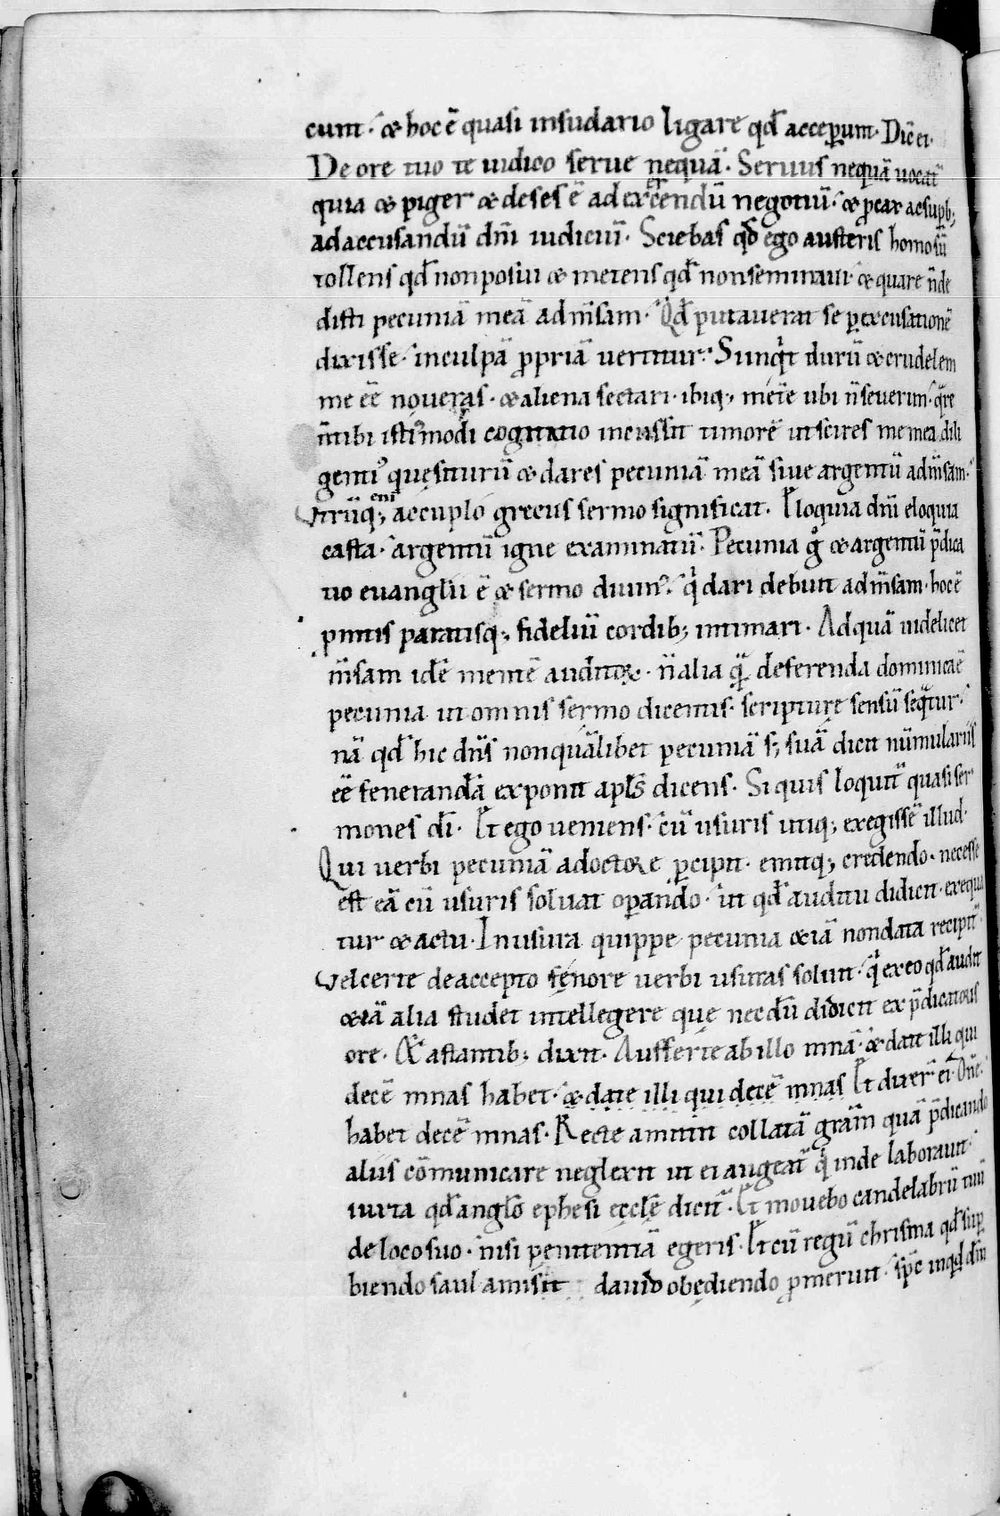 cum· & hoc ē quasi insudario ligare qđ acceperunt· Dic̄ ei·
De ore tuo te iudico serue nequā· Seruus nequā uocat̄
quia & piger & deses ē ad exercendū negotiū· & ꝓcax ac suꝑb;
ad accusandū dn̄i iudiciū· Sciebas qđ ego austeris homo sū
tollens qđ non posui & metens qđ non seminaui· & quare n̄ de
disti pecuniā meā ad m̄sam· Qđ putauerat se ꝑ excusationē
dixisse· in culpā ꝓpriā uertitur· Si inqͥt durū & crudelem
me eē noueras· & aliena sectari· ibiq; mete̅ ubi n̄ seuerim· qͣre
n̄ tibi istiͧmodi cogitatio incussit timorē ut scires me mea dili
gentiꝰ quęsiturū & dares pecuniā meā siue argentū ad m̄sam·
Vtrūq; eni̅ accuplo grecus sermo significat· Eloquia dn̄i eloquia
casta· argentū igne examinatū· Pecunia gͦ & argentū p̄dica
tio euanglii ē & sermo diuinꝰ· qͥ dari debuit ad m̄sam· hoc ē
ꝓmtis paratisq; fideliū cordib; intimari· Ad quā uidelicet
m̄sam idē mentē auditorꝫ· n̄ alia qͣ̄ deferenda dominicaē
pecunia ut omnis sermo dicentis· scripturę sensū seqͣtur·
nā qđ hic dn̄s non quālibet pecuniā s; suā dicit nūmulariis
eē fenerandā exponit apl̄s dicens· Si quis loquit̄ quasi ser
mones dī· Et ego ueniens· cū usuris utiq; exegissē illud·
Qui uerbi pecuniā a doctore ꝑcipit· emitq; credendo· necesse
est eā cū usuris soluat oꝑando· ut qđ auditu didicit· exequa
tur & actu· In usura quippe pecunia &iā non data recipit̄·
Vel certe de accepto fęnore uerbi usuras soluit· qͥ ex eo qđ audit
&iā alia studet intellegere que necdū didicit ex p̄dicatoris
ore· Et astantib; dixit· Aufferte ab illo mnā· & date illi qui
decē mnas habet· & date illi qui decē mnas Et dixer̄ ei· Dn̄e·
habet decē mnas· Recte amittit collatā gr̄am quā p̄dicando
aliis cōmunicare neglexit ut ei augeat̄ qͥ inde laborauit·
iuxta qđ anglo̅ ephesi eccl̄ę dicit̄· Et mouebo candelabrū tuū
de loco suo· nisi penitentiā egeris· Et cū regū chrisma qđ suꝑ
biendo saul amisit dauid obędiendo ꝓmeruit·